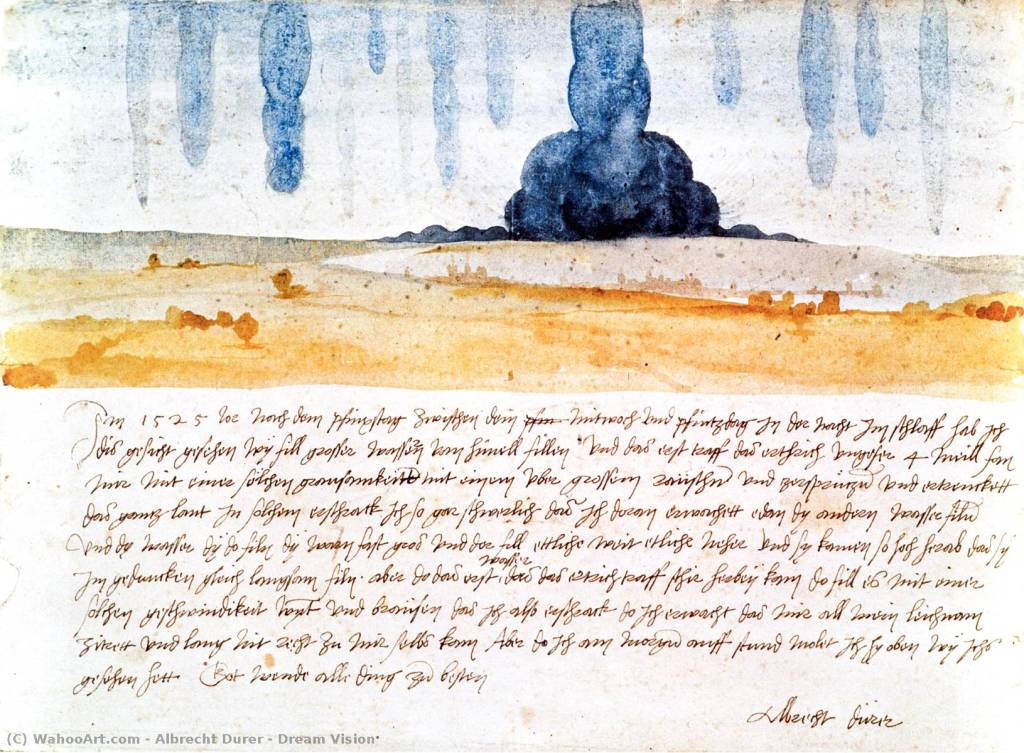 Im 1525 Jor noch dem pfinxstag zwischen dem Mitwoch und pfintzdag in der nacht im schlaff hab ich
dis gesicht gesehen wy fill grosser wassern vom himell fillen Und das erst traff das erthrich ungefer 4 meill fan
mir mit einer solchen grausamkeitt mit einem uber grossem raüschn und zersprützn und ertrenckett
das gantz lant In solchem erschrack ich so gar schwerlich das ich doran erwachett edan dy andern wasser filn
Und dy wasser dy do filn dy warn fast gros und der fill ettliche weit etliche neher und sy kamen so hoch herab das sy
im gedancken gleich langsam filn. aber do das erst wasser das das ertrich traff schir herbey kam do fill es mit einer
solchen geschwindikeit wynt und braüsen das ich also erschrack do ich erwacht das mir all mein leichnam
zitrett und lang nit recht zu mir selbs kam Aber do ich am morgn auff stund molet ich hy oben wy ichs
gesehen hett. Got wende alle ding zu besten
Albrecht dürer
(C) WahooArt.com - Albrecht Durer - Dream Vision